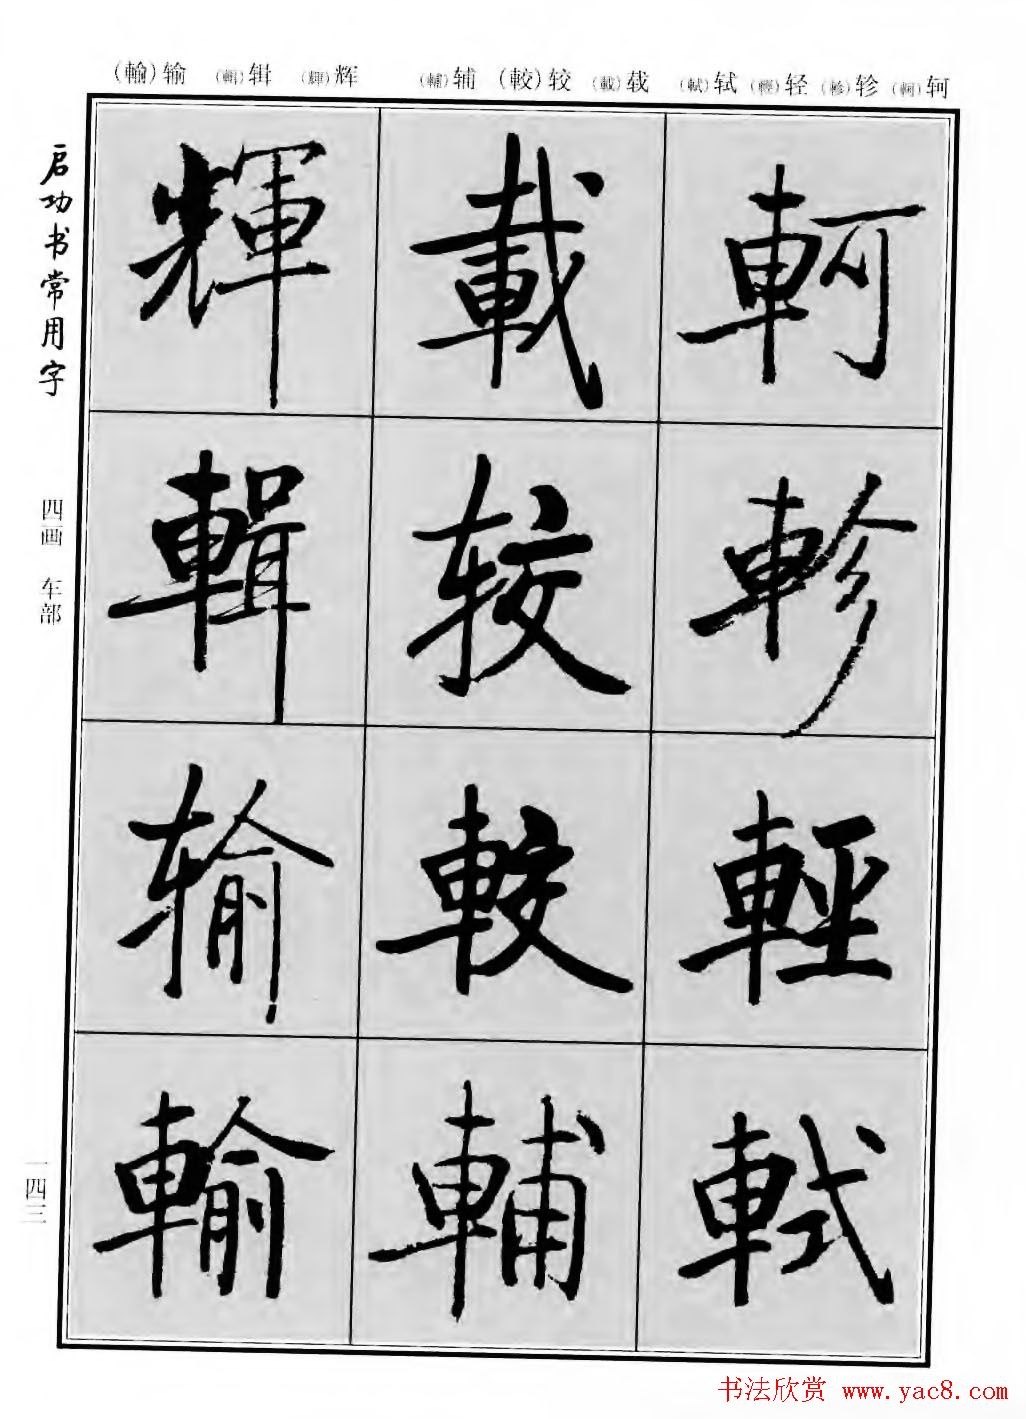 (輸)输 (輯)辑 (輝)辉 (輔)辅 (較)较 (載)载 (軾)轼 (輕)轻 (軫)轸 (軻)轲
启功书常用字
四画 车部
一四三
軻
軫
輕
軾
載
较
較
輔
輝
輯
输
輸
书法欣赏 www.yac8.com